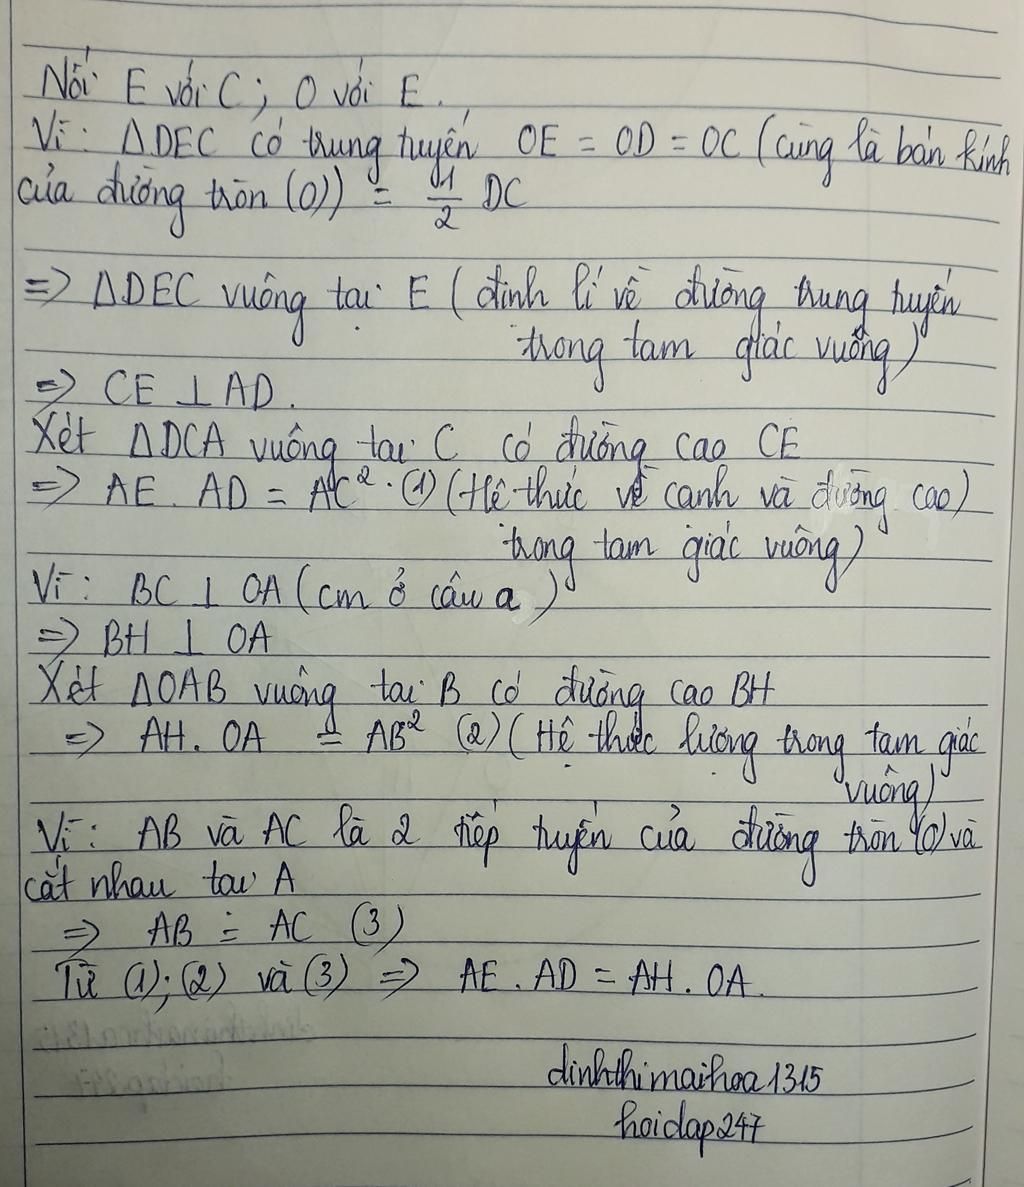 Nối E với C; O với E.
Vì: ΔDEC có trung tuyến OE = OD = OC (cùng là bán kính
của đường tròn (O)) = 1/2 DC
=> ΔDEC vuông tại E (định lí về đường trung tuyến
trong tam giác vuông)
=> CE ⊥ AD.
Xét ΔDCA vuông tại C có đường cao CE
=> AE. AD = AC². (1) (Hệ thức về cạnh và đường cao)
trong tam giác vuông)
Vì: BC ⊥ OA (cm ở câu a)
=> BH ⊥ OA
Xét ΔOAB vuông tại B có đường cao BH
=> AH. OA = AB² (2) (Hệ thức lượng trong tam giác
vuông)
Vì: AB và AC là 2 tiếp tuyến của đường tròn (O) và
cắt nhau tại A
=> AB = AC (3)
Từ (1); (2) và (3) => AE. AD = AH. OA.
dinhthimaihoa1315
hoidap247